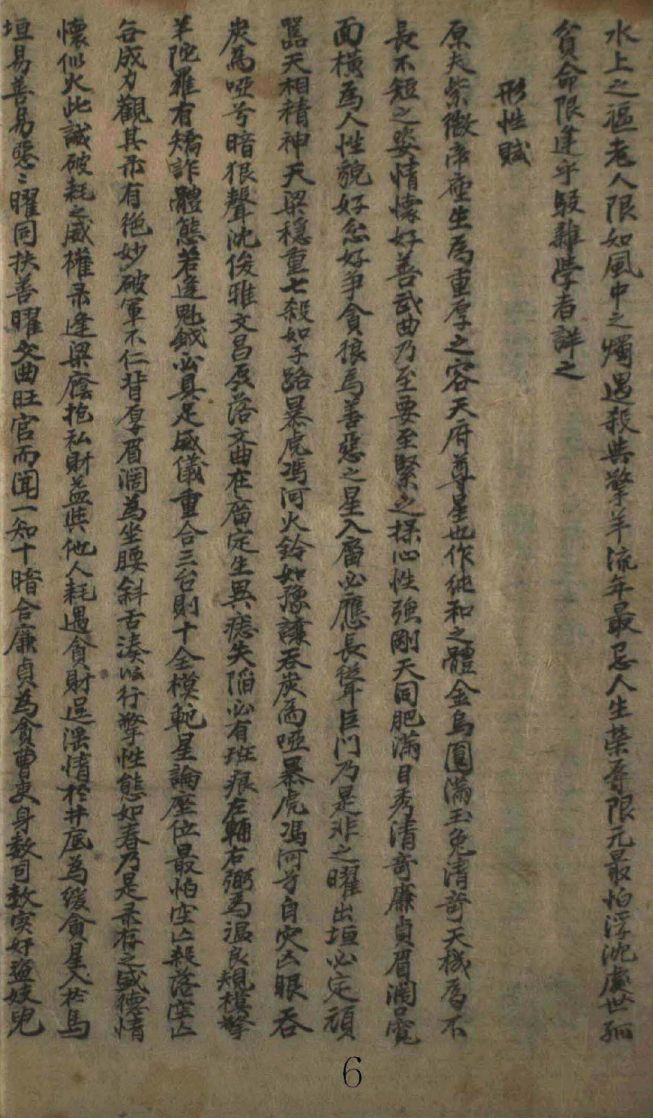 水上之漚老人限如風中之燭遇殺與擎羊流年最忌人生榮辱限元最怕浮沈處世孤
貧命限逢乎駁雜學者詳之
形性賦
原夫紫微帝座生為重厚之容天府尊星也作純和之體金烏圓滿玉兔清奇天機為不
長不短之姿情懷好善武曲乃至要至緊之操心性強剛天同肥滿目秀清奇廉貞眉濶口寬
面橫為人性貌好忿好爭貪狼為善惡之星入廟必應長聳巨門乃是非之曜出垣必定頑
嚚天相精神天梁穩重七殺如子路暴虎馮河火鈴如豫讓吞炭為啞暴虎馮河兮自突凶眼吞
炭為啞兮暗狠聲沈俊雅文昌磊落文曲在廟定生異痣失陷必有斑痕左輔右弼為溫良規模擎
羊陀羅有矯詐體態若逢魁鉞必具足威儀重合三台則十全模範星論座位最怕空亡殺落空亡
各成力觀其帛有絕妙破軍不仁背厚眉濶為坐腰斜舌湊行擎性態如春乃是祿存之盛德情
懷似火此誠破耗之威權祿逢梁廕抱私財益與他人耗遇貪財逞濃情於井底為緩貪星入於馬
垣易善易惡惡曜同扶善曜文曲旺宮而聞一知十暗合廉貞為貪曹吏身數司數實奸盜妓兒
6